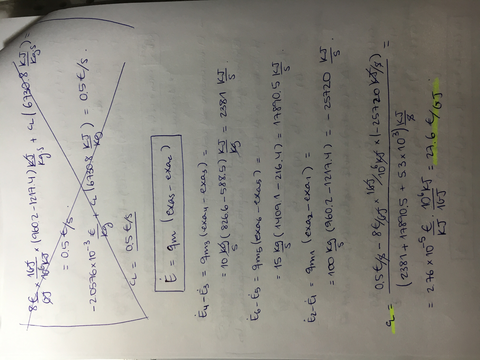 8€/GJ × 1GJ/10⁶kJ × (960.2-1217.4) kJ/kg s + c (6730.8 kJ/kg s) =
= 0.5 €/s.
-20576×10⁻³ €/kg + c (6730.8 kJ/kg) = 0.5 €/s.
c = 0.5 €/s
Ė = qm (exas - exae)
Ė4-Ė3 = qm3 (exa4 - exa3) =
= 10 kg/s (826.6 - 588.5) kJ/kg = 2381 kJ/s
Ė6-Ė5 = qm5 (exa6 - exa5) =
= 15 kg/s (1409.1 - 216.4) = 17890.5 kJ/s
Ė2-Ė1 = qm1 (exa2 - exa1) =
= 100 kg/s (960.2 - 1217.4) = -25720 kJ/s.
c = 0.5 €/s - 8€/GJ × 1GJ/10⁶kJ × (-25720 kJ/s) / (2381 + 17890.5 + 53×10³) kJ/s =
= 2.76×10⁻⁵ €/kJ · 10⁶kJ/1GJ = 27.6 €/GJ.